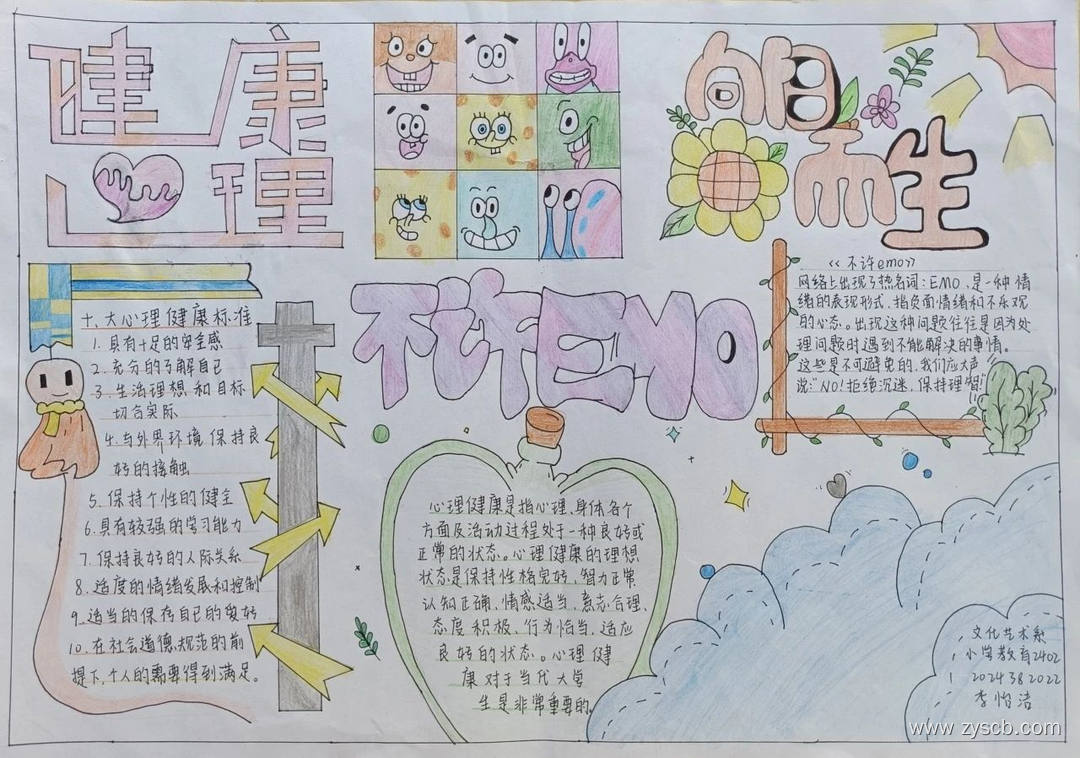 健康
心理
向阳
而生
不许EMO
十大心理健康标准
1.具有十足的安全感
2.充分的了解自己
3.生活理想和目标
切合实际
4.与外界环境保持良
好的接触
5.保持个性的健全
6.具有较强的学习能力
7.保持良好的人际关系
8.适度的情绪发展和控制
9.适当的保存自己的爱好
10.在社会道德规范的前
提下,个人的需要得到满足。
《不许emo》
网络上出现了热名词:EMO,是一种情
绪的表现形式,指负面情绪和不乐观
的心态。出现这种问题往往是因为处
理问题时遇到不能解决的事情。
这些是不可避免的,我们应大声
说:"NO!拒绝沉迷,保持理智!"
心理健康是指心理、身体各个
方面及活动过程处于一种良好或
正常的状态。心理健康的理想
状态是保持性格完好、智力正常、
认知正确、情感适当、意志合理、
态度积极、行为恰当、适应
良好的状态。心理健
康对于当代大学
生是非常重要的。
文化艺术系
小学教育2402
2024382022
李怡洁
www.zyscb.com